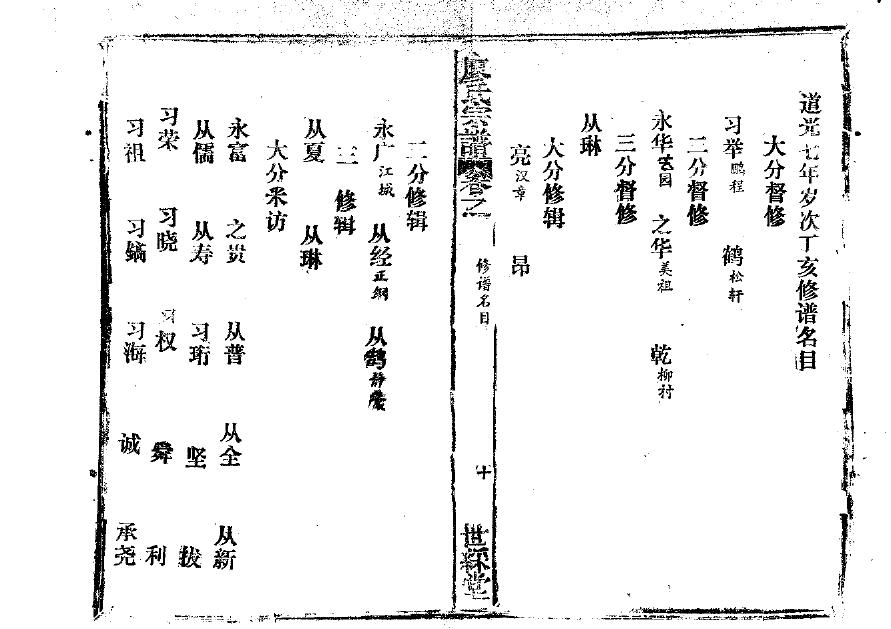 道光七年岁次丁亥修谱名目
大分督修
习举鹏程 鹤松轩
二分督修
永华艺园 之华美祖 乾柳村
三分督修
从琳
大分修辑
亮汉章 昂
廖氏宗谱 卷之一 修谱名目 十 世䌽堂
二分修辑
永广江城 从经正纲 从鹤静庵
三 修辑
从夏 从琳
大分采访
永富 之贵 从普 从全 从新
从儒 从寿 习珩 坚 拔
习荣 习晓 习权 舜 利
习祖 习镐 习海 诚 承尧